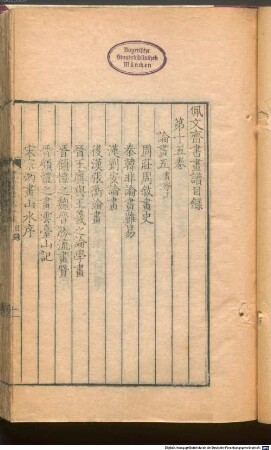 Bayerische
Staatsbibliothek
München
佩文齋書畫譜目錄
第十五卷
論畫五
周莊周敘畫史
秦韓非論畫難易
漢劉安論畫
後漢張衡論畫
晉王廙與王羲之論學畫
晉顧愷之魏晉勝流畫贊
晉顧愷之畫雲臺山記
宋宗炳畫山水序